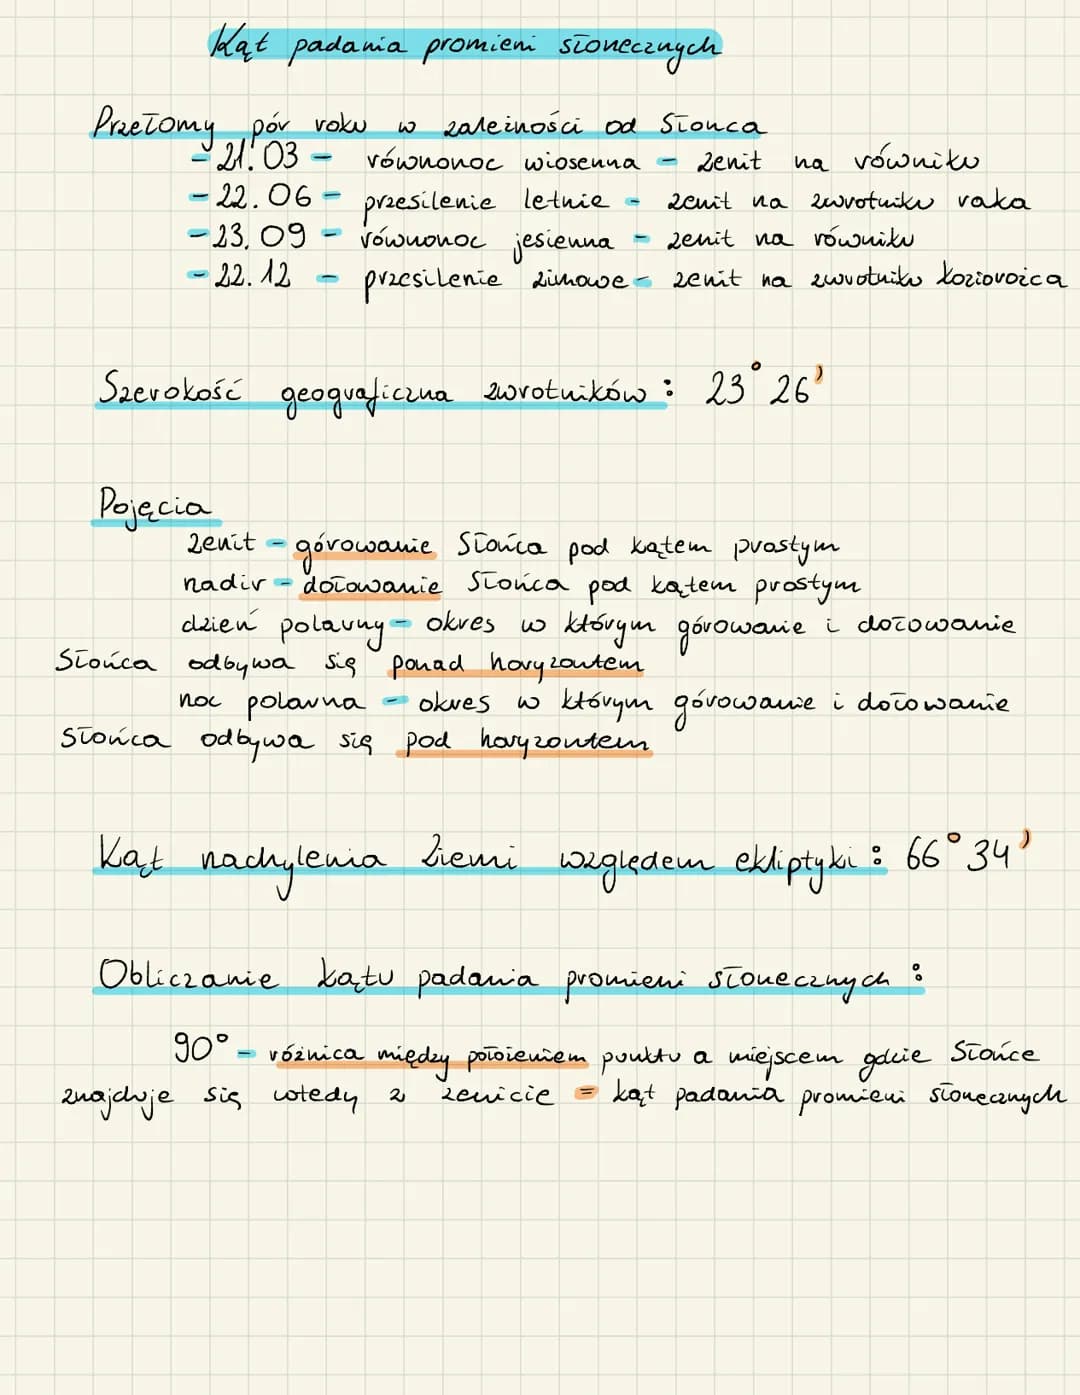 Kąt padania promieni słonecznych
Przełomy pór roku w zależności od Słonca
- 21.03 - równonoc wiosenna - zenit na równiku
- 22.06 - przesilenie letnie - zenit na zwrotniku raka
- 23.09 - równonoc jesienna - zenit na równiku
- 22.12 - przesilenie zimowe - zenit na zwrotniku koziorożca
Szerokość geograficzna zwrotników: 23°26'
Pojęcia
zenit - górowanie Słońca pod kątem prostym
nadir - dołowanie Słońca pod kątem prostym
dzień polarny - okres w którym górowanie i dołowanie
Słońca odbywa się ponad horyzontem
noc polarna - okres w którym górowanie i dołowanie
Słońca odbywa się pod horyzontem
Kąt nachylenia Ziemi względem ekliptyki: 66°34'
Obliczanie kątu padania promieni słonecznych:
90° - różnica między położeniem punktu a miejscem gdzie Słońce
znajduje się wtedy z zenicie = kąt padania promieni słonecznych